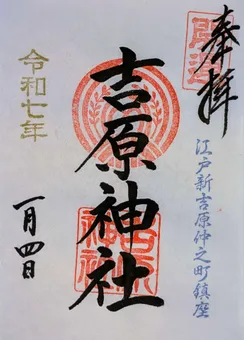 奉拝
開運
江戸新吉原仲之町鎮座
吉原神社
令和七年
一月四日